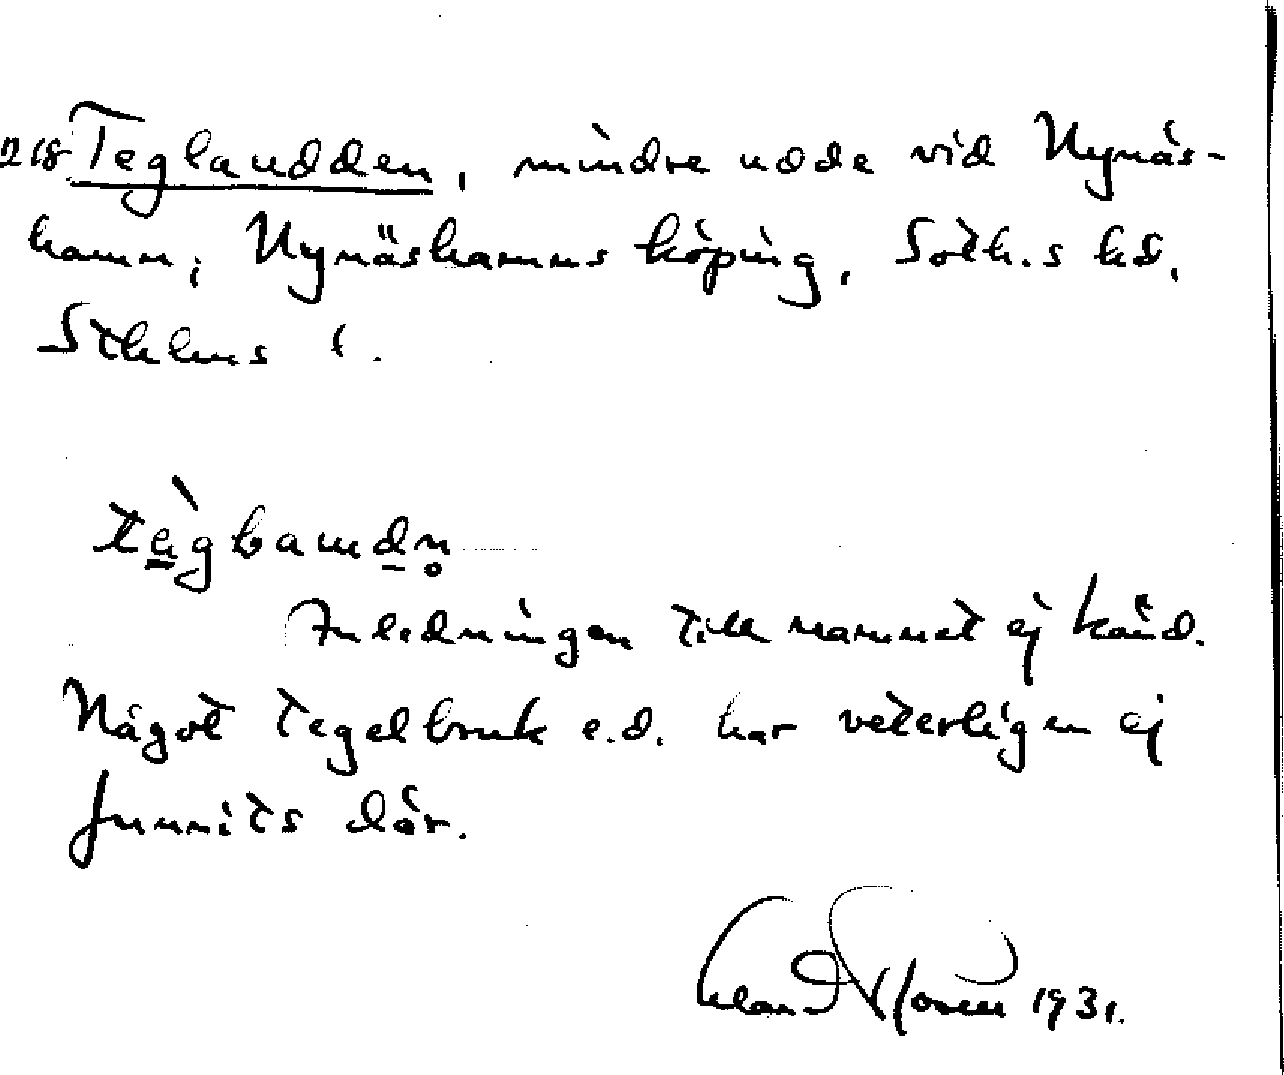 218 Teglaudden, mindre udde vid Nynäs-
hamn, Nynäshamns köping, Soth.s hd,
Sthlms l.
Anledningen till namnet ej känd.
Något tegelbruk e.d. har veterligen ej
funnits där.
1931.